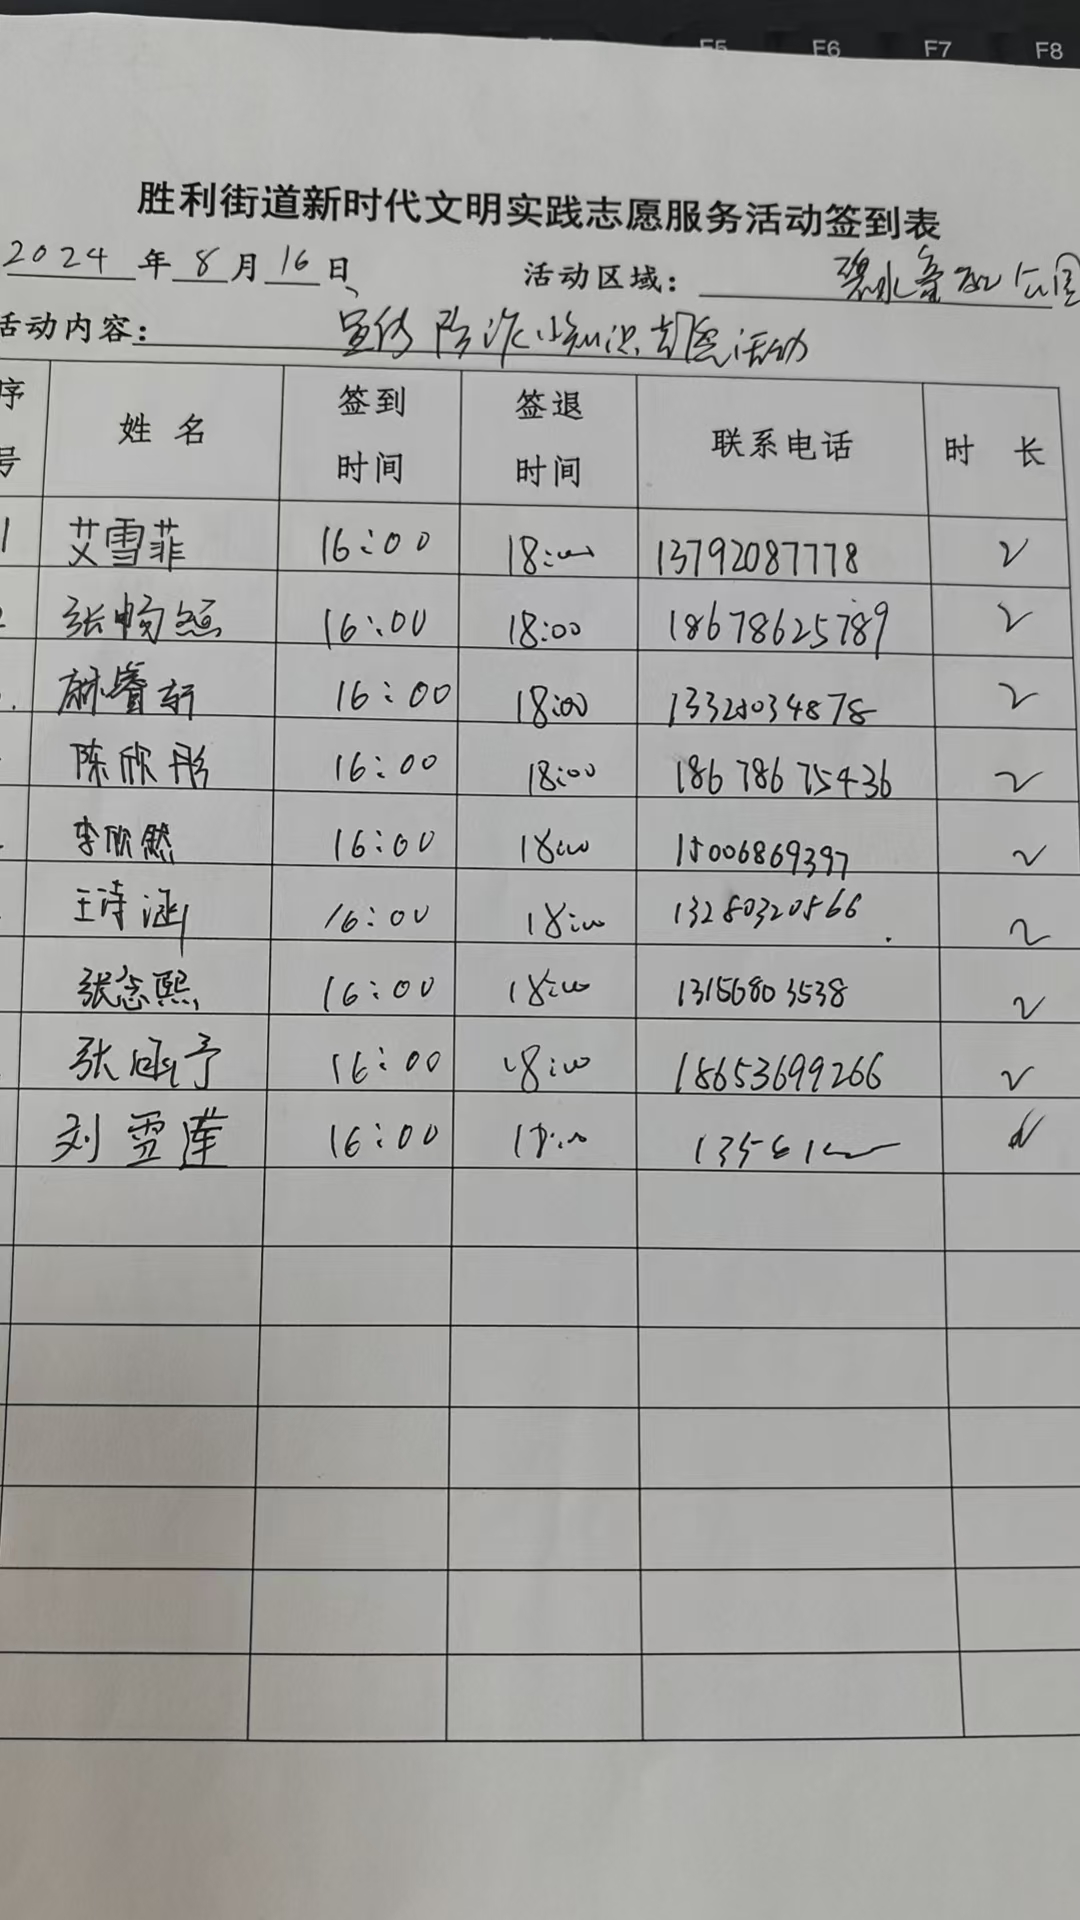 F5 F6 F7 F8
胜利街道新时代文明实践志愿服务活动签到表
2024 年 8 月 16 日 活动区域： 碧水 公园
活动内容： 宣传防诈小知识志愿活动
序号 姓名 签到时间 签退时间 联系电话 时长
1 艾雪菲 16:00 18:00 13792087778 2
2 张畅 16:00 18:00 18678625789 2
麻睿轩 16:00 18:00 2
陈欣彤 16:00 18:00 18678675436 2
李欣然 16:00 18:00 15006869397 2
王诗涵 16:00 18:00 13280320566 2
张念熙 16:00 18:00 13156803538 2
张涵予 16:00 18:00 18653699266 2
刘雪莲 16:00 18:00